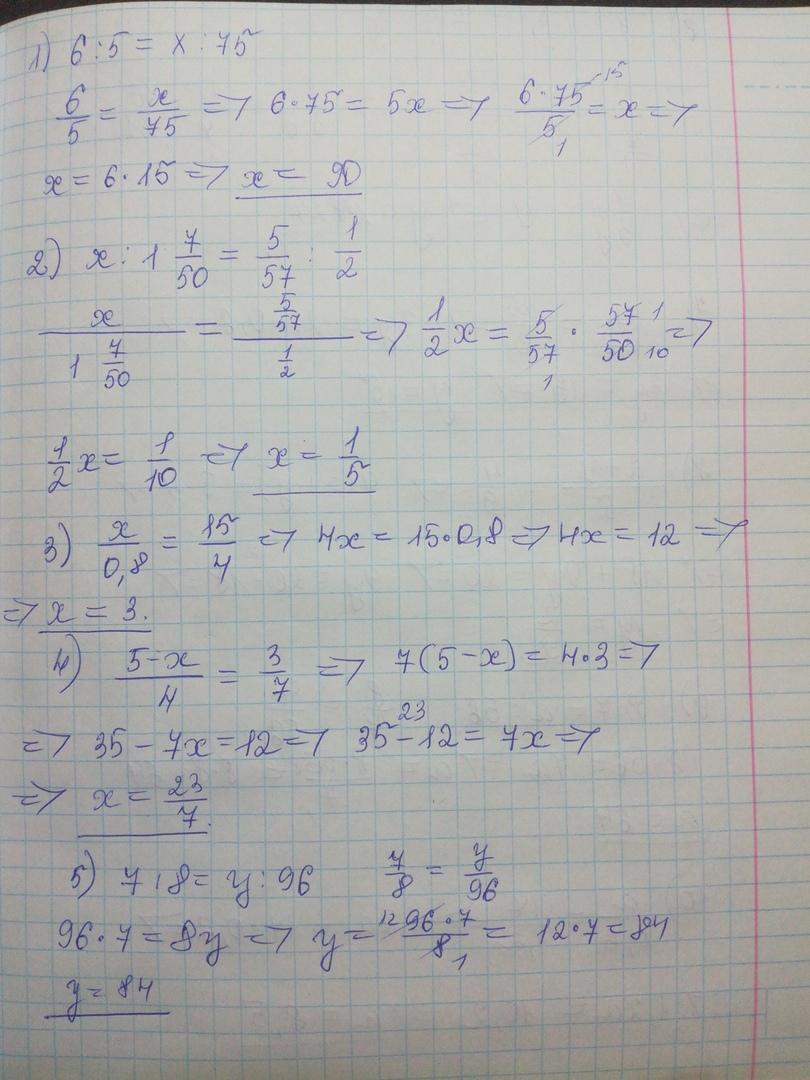 1) 6 : 5 = x : 75
6/5 = x/75 => 6·75 = 5x => 6·75 15/5 1 = x =>
x = 6·15 => x = 90
2) x : 1 7/50 = 5/57 : 1/2
x/(1 7/50) = (5/57)/(1/2) => 1/2 x = 5/57 1 · 57 1/50 10 =>
1/2 x = 1/10 => x = 1/5
3) x/0,8 = 15/4 => 4x = 15·0,8 => 4x = 12 =>
=> x = 3.
4) (5-x)/4 = 3/7 => 7(5-x) = 4·3 =>
=> 35 - 7x = 12 => 35 - 12 23 = 7x =>
=> x = 23/7.
5) 7 : 8 = y : 96 7/8 = y/96
96·7 = 8y => y = 12 96·7/8 1 = 12·7 = 84
y = 84